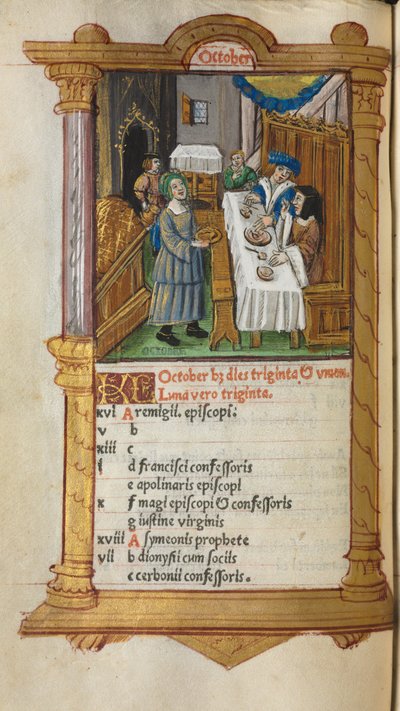 October
KL October hȝ dies triginta & vnum.
Luna vero triginta.
xvi A remigii. episcopi.
v b
xiii c
i d francisci confessoris
e apolinaris episcopi
x f magi episcopi & confessoris
g iustine virginis
xviii A symeonis prophete
vii b dionysii cum sociis
c cerbonii confessoris.